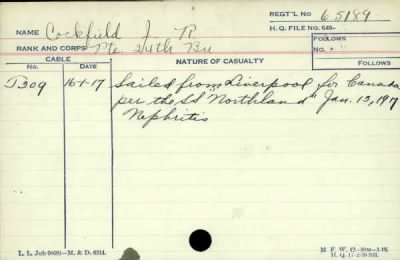 REGT'L NO 65189
NAME Cockfield J. R
H. Q. FILE NO. 649-
RANK AND CORPS Pte 24th Bn
FOLLOWS
NO.
CABLE
NATURE OF CASUALTY
FOLLOWS
No. DATE
J309 16-1-17 Sailed from Liverpool for Canada
per the SS "Northland" Jan. 13, 1917
Nephritis
L. L. Job 99691-M. & D. 6314.
M. F. W. 42